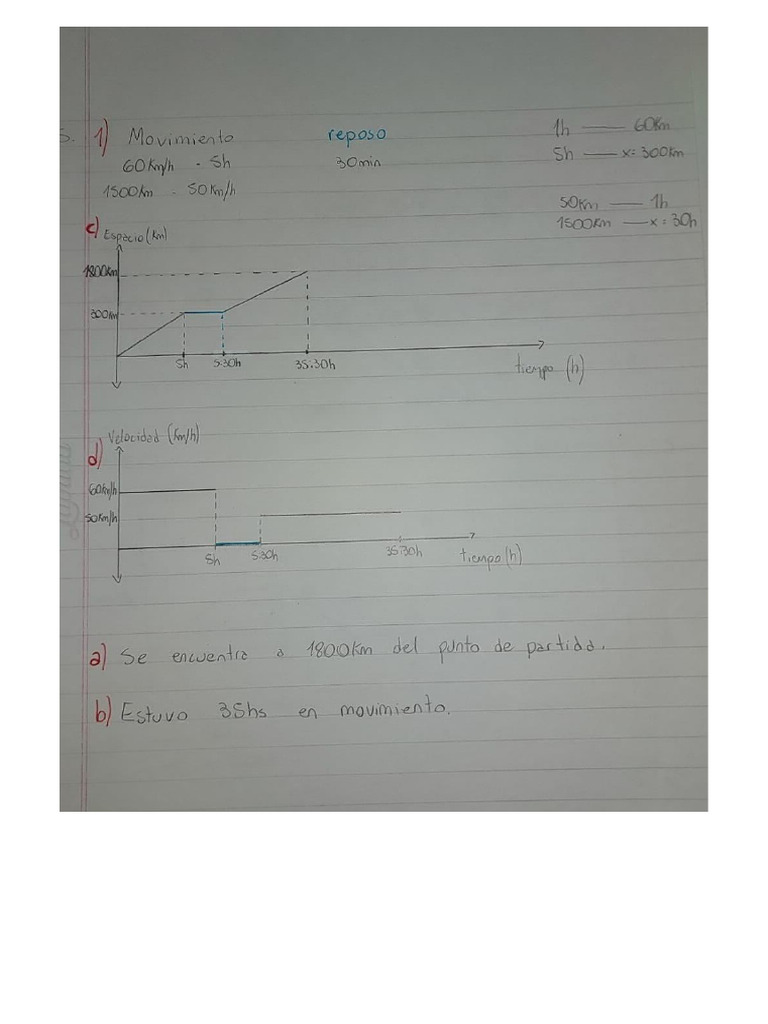 5. 1) Movimiento reposo
60Km/h - 5h 30min
1500Km - 50Km/h
1h — 60Km
5h — x = 300Km
50Km — 1h
1500Km — x = 30h
c) Espacio (Km)
1800Km
300Km
5h 5:30h 35:30h
tiempo (h)
d) Velocidad (Km/h)
60Km/h
50Km/h
5h 5:30h 35:30h tiempo (h)
a) Se encuentra a 1800Km del punto de partida.
b) Estuvo 35hs en movimiento.